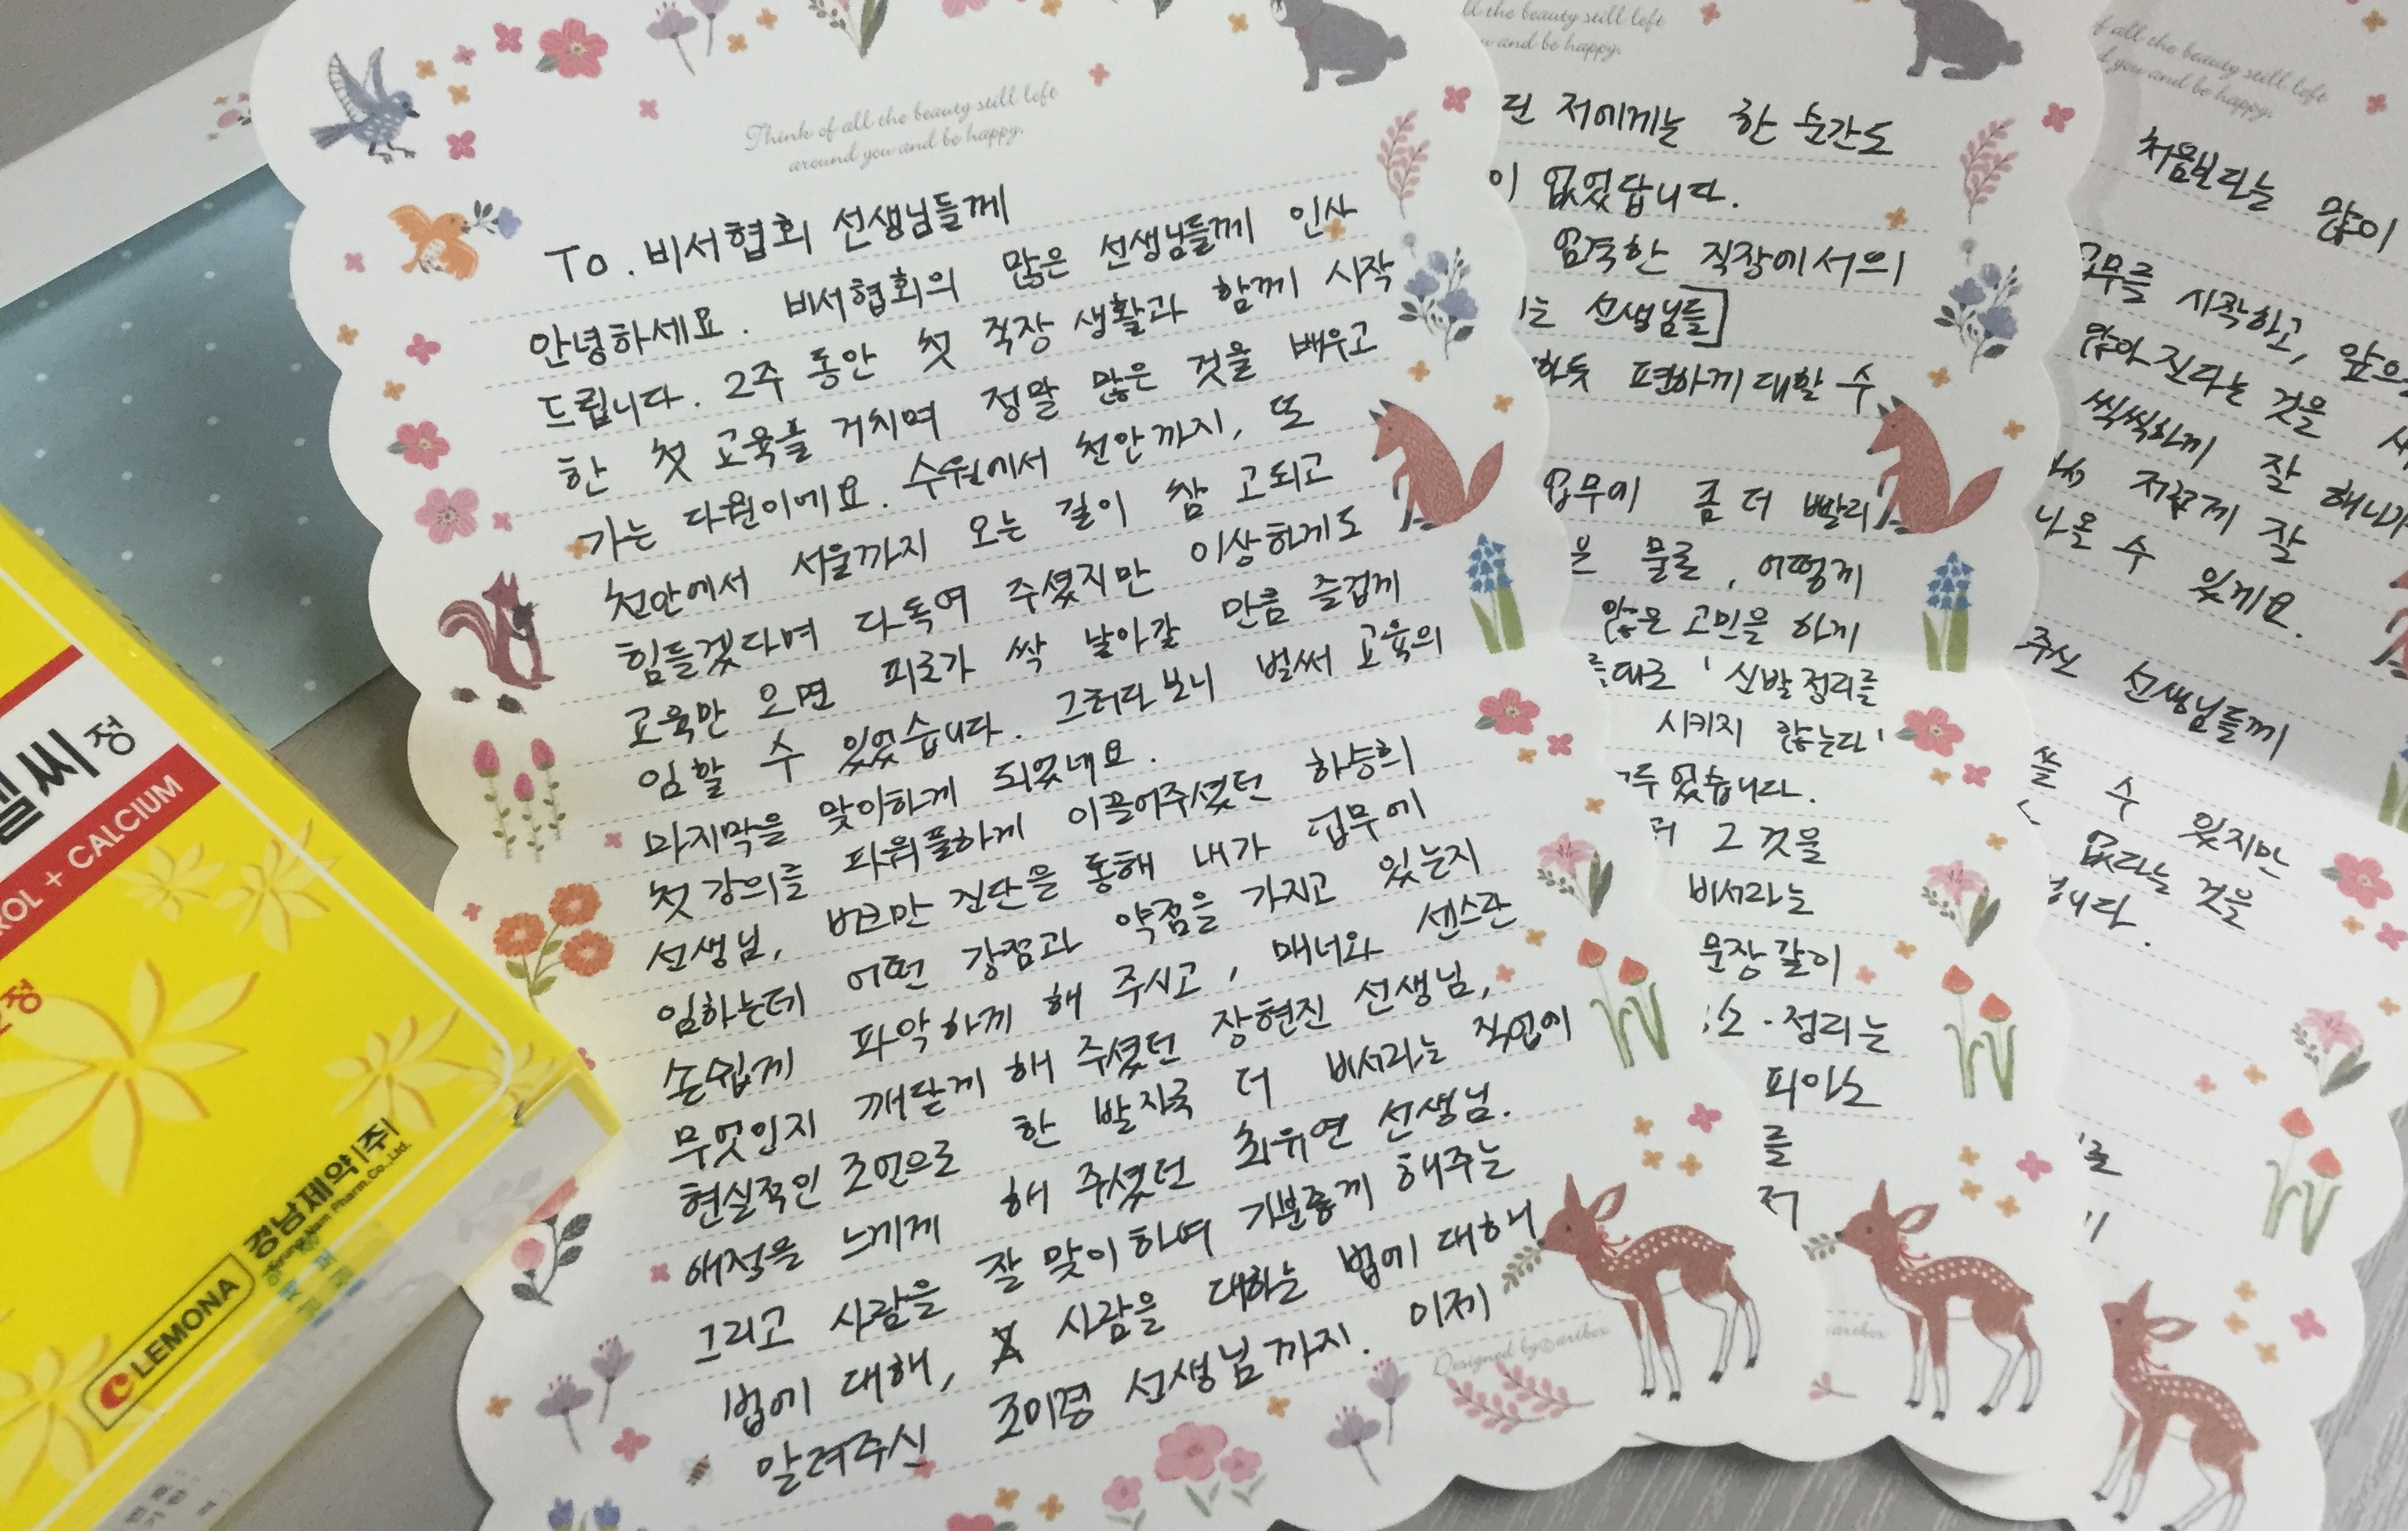 Think of all the beauty still left
around you and be happy.
To. 비서협회 선생님들께
안녕하세요. 비서협회의 많은 선생님들께 인사
드립니다. 2주 동안 첫 직장 생활과 함께 시작
한 첫 교육을 거치며 정말 많은 것을 배우고
가는 다원이에요. 수원에서 천안까지, 또
천안에서 서울까지 오는 길이 참 고되고
힘들겠다며 다독여 주셨지만 이상하게도
교육만 오면 피로가 싹 날아갈 만큼 즐겁게
임할 수 있었습니다. 그러다보니 벌써 교육의
마지막을 맞이하게 되었네요.
첫 강의를 파워풀하게 이끌어주셨던 하승희
선생님, 버크만 진단을 통해 내가 업무에
임하는데 어떤 강점과 약점을 가지고 있는지
손쉽게 파악하게 해 주시고, 매너와 센스란
무엇인지 깨닫게 해 주셨던 장현진 선생님,
현실적인 조언으로 한 발자국 더 비서라는 직업에
애정을 느끼게 해 주셨던 최유연 선생님.
그리고 사람을 잘 맞이하며 기분좋게 해주는
법에 대해, 사람을 대하는 법에 대해
알려주신 조미경 선생님까지. 이제
Designed by artbox
ll the beauty still left
and be happy.
딘 저에게는 한 순간도
이 없었답니다.
엄격한 직장에서의
는 선생님들]
하듯 편하게 대할 수
업무에 좀 더 빨리
은 물론, 어떻게
않은 고민을 하게
대로 '신발정리를
시키지 않는다'
두었습니다.
그것을
비서라는
문장같이
소·정리는
피아노
를
저
artbox
f all the beauty still left
d you and be happy.
처음보다는 많이
업무를 시작하고, 앞으
많아진다는 것을
씩씩하게 잘 해나가
저렇게 잘
나올 수 있게요.
주신 선생님들께
쓸 수 있지만
없다는 것을
니다.
를
정
ROL + CALCIUM
정
LEMONA
경남제약(주)
KyungNam Pharm.Co.,Ltd.